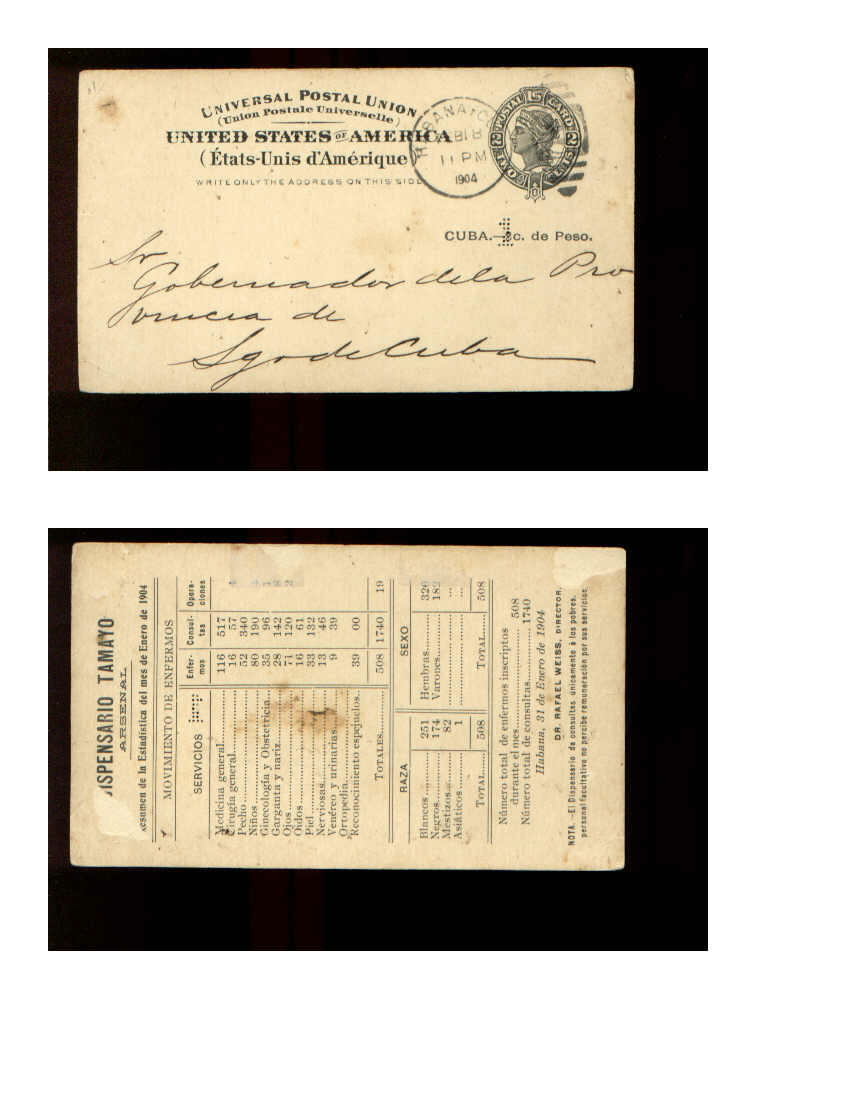 UNIVERSAL POSTAL UNION
(Union Postale Universelle)
UNITED STATES OF AMERICA
(États-Unis d'Amérique
WRITE ONLY THE ADDRESS ON THIS SIDE
HABANA
FEB 18
11 PM
1904
POSTAL CARD
ONE
CUBA.—1c. de Peso.
Sr
Gobernador de la Pro
vincia de
Sgo de Cuba
DISPENSARIO TAMAYO
ARSENAL
Resumen de la Estadística del mes de Enero de 1904
MOVIMIENTO DE ENFERMOS
SERVICIOS Enfer-mos Consul-tas Opera-ciones
Medicina general 116 517
Cirugía general 16 57
Pecho 52 340
Niños 80 190
Ginecología y Obstetricia 35 96
Garganta y nariz 28 142
Ojos 71 120
Oidos 16 61
Piel 33 132
Nerviosas 13 46
Venéreo y urinarias 9 39
Ortopedia
Reconocimiento espejuelos 39 00
TOTALES 508 1740 19
RAZA SEXO
Blancos 251 Hembras 326
Negros 174 Varones 182
Mestizos 82
Asiáticos 1
TOTAL 508 TOTAL 508
Número total de enfermos inscriptos
durante el mes 508
Número total de consultas 1740
Habana, 31 de Enero de 1904
DR. RAFAEL WEISS, DIRECTOR.
NOTA.—El Dispensario da consultas únicamente á los pobres.
personal facultativo no percibe remuneración por sus servicios